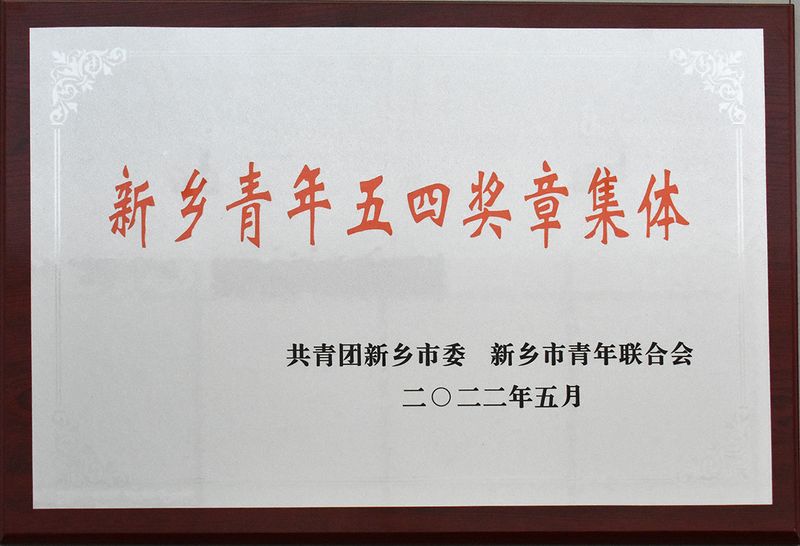 新乡青年五四奖章集体
共青团新乡市委 新乡市青年联合会
二〇二二年五月